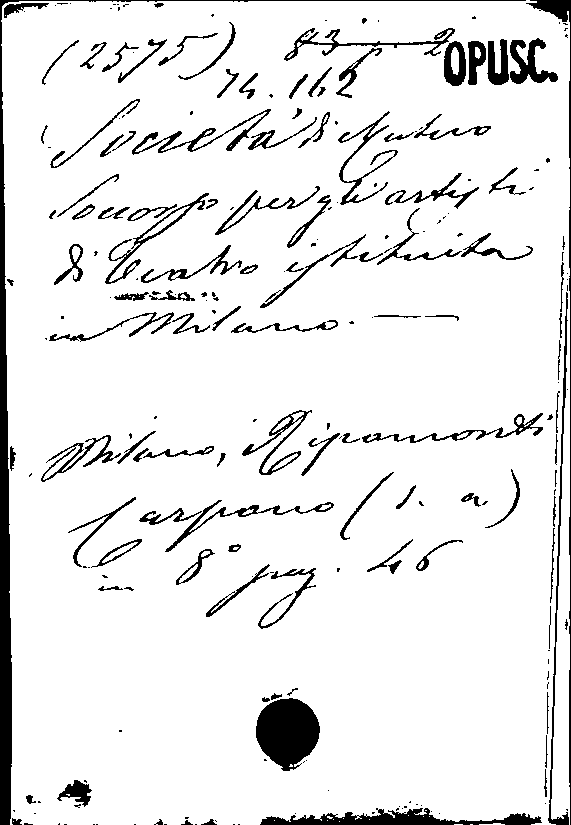 (2575) 83 p. 2 OPUSC.
74.162
Società di Mutuo
Soccorso per gli artisti
di Teatro istituita
in Milano. —
Milano, Ripamonti
Carpano (s. a)
in 8° pag. 46